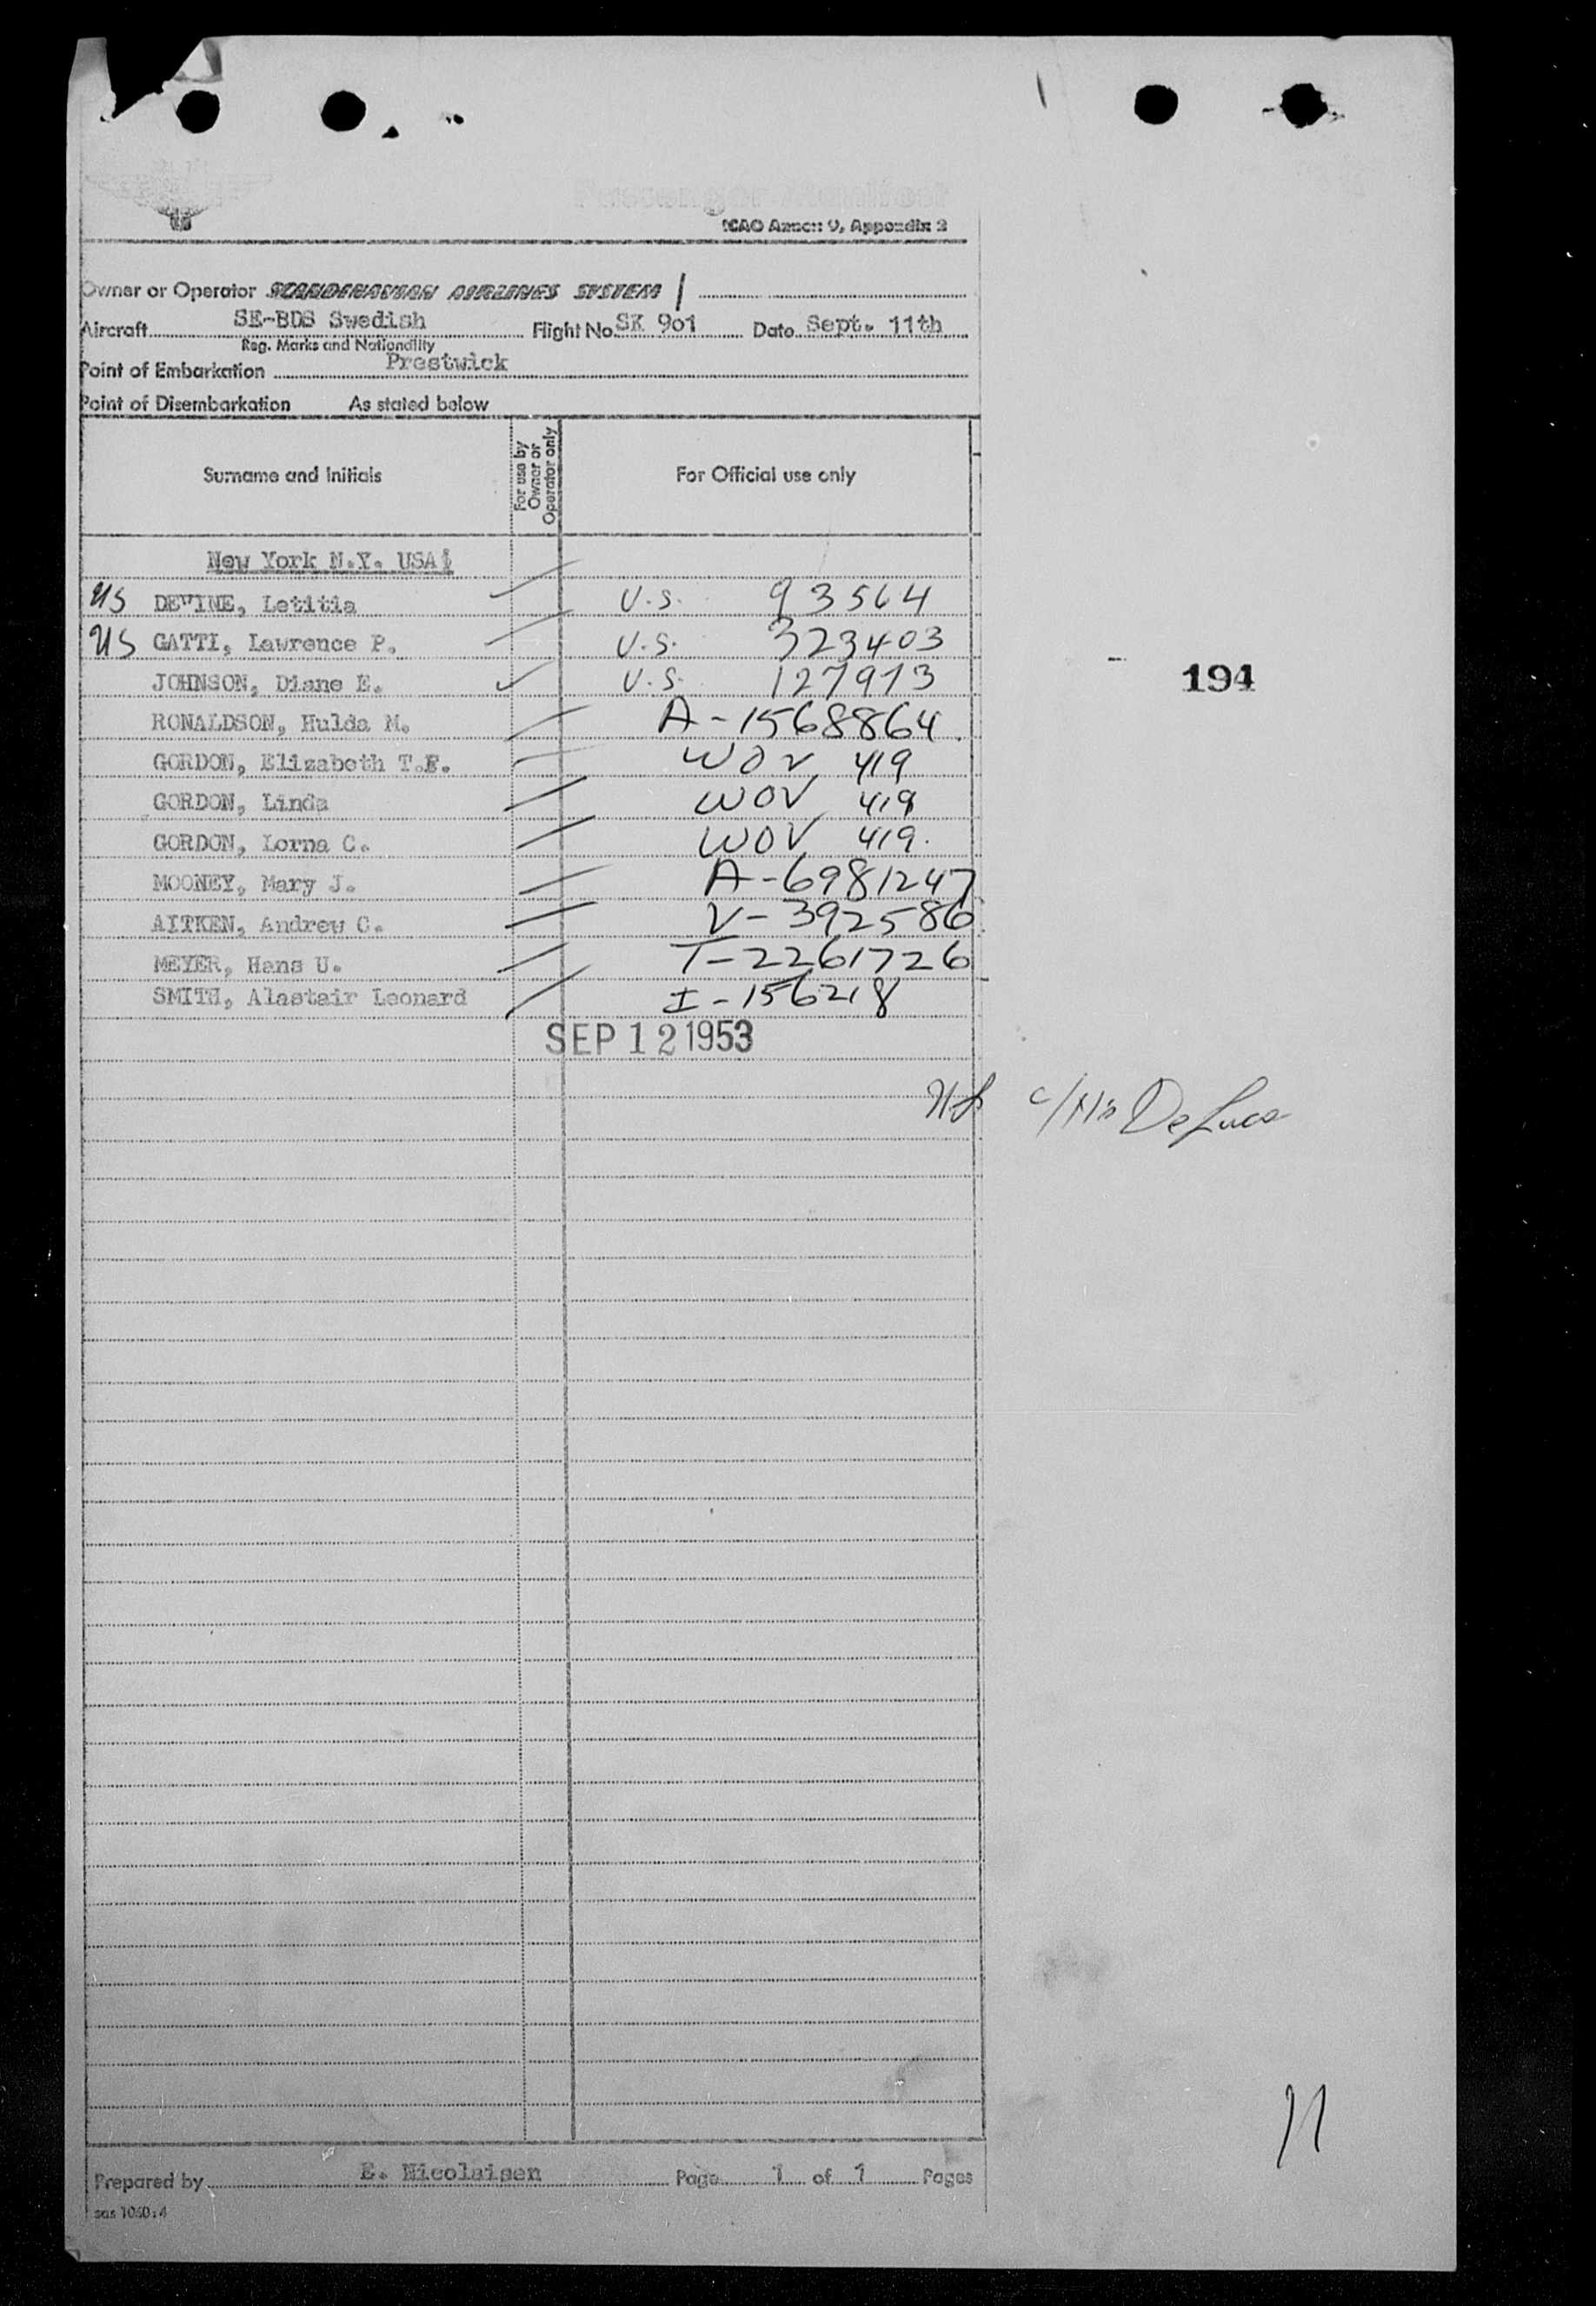 Passenger Manifest
ICAO Annex 9, Appendix 2
Owner or Operator SCANDINAVIAN AIRLINES SYSTEM
Aircraft SE-BDS Swedish Flight No. SK 901 Date Sept. 11th
Reg. Marks and Nationality
Point of Embarkation Prestwick
Point of Disembarkation As stated below
Surname and Initials For use by Owner or Operator only For Official use only
New York N.Y. USA
US DEVINE, Letitia U.S. 93564
US GATTI, Lawrence P. U.S. 323403
JOHNSON, Diane E. U.S. 127913
194
RONALDSON, Hulda M. A-1568864
GORDON, Elizabeth T.F. WOV 419
GORDON, Linda WOV 419
GORDON, Lorna C. WOV 419.
MOONEY, Mary J. A-6981247
AITKEN, Andrew C. V-392586
MEYER, Hans U. T-2261726
SMITH, Alastair Leonard I-156218
SEP 12 1953
De Luca
11
Prepared by E. Nicolaisen Page 1 of 1 Pages
sas 1060:4